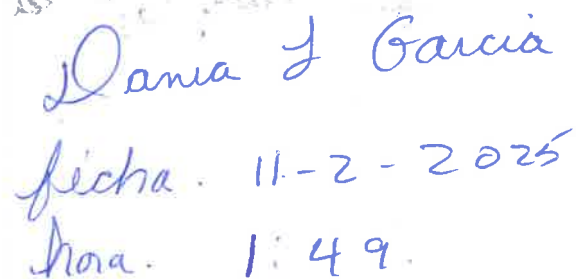 Dania L Garcia
fecha. 11-2-2025
hora. 1:49.